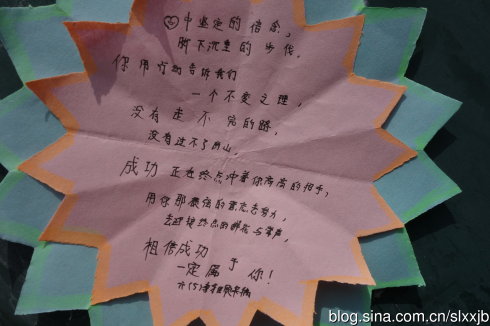 中坚定的信念,
脚下沉重的步伐。
你用行动告诉我们
一个不变之理,
没有走不完的路,
没有过不了的山。
成功正在终点冲着你高高的招手,
用你那 的意志去努力,
去迎接终点的鲜花与掌声,
相信成功
一定属于你!
六(5)
blog.sina.com.cn/slxxjb